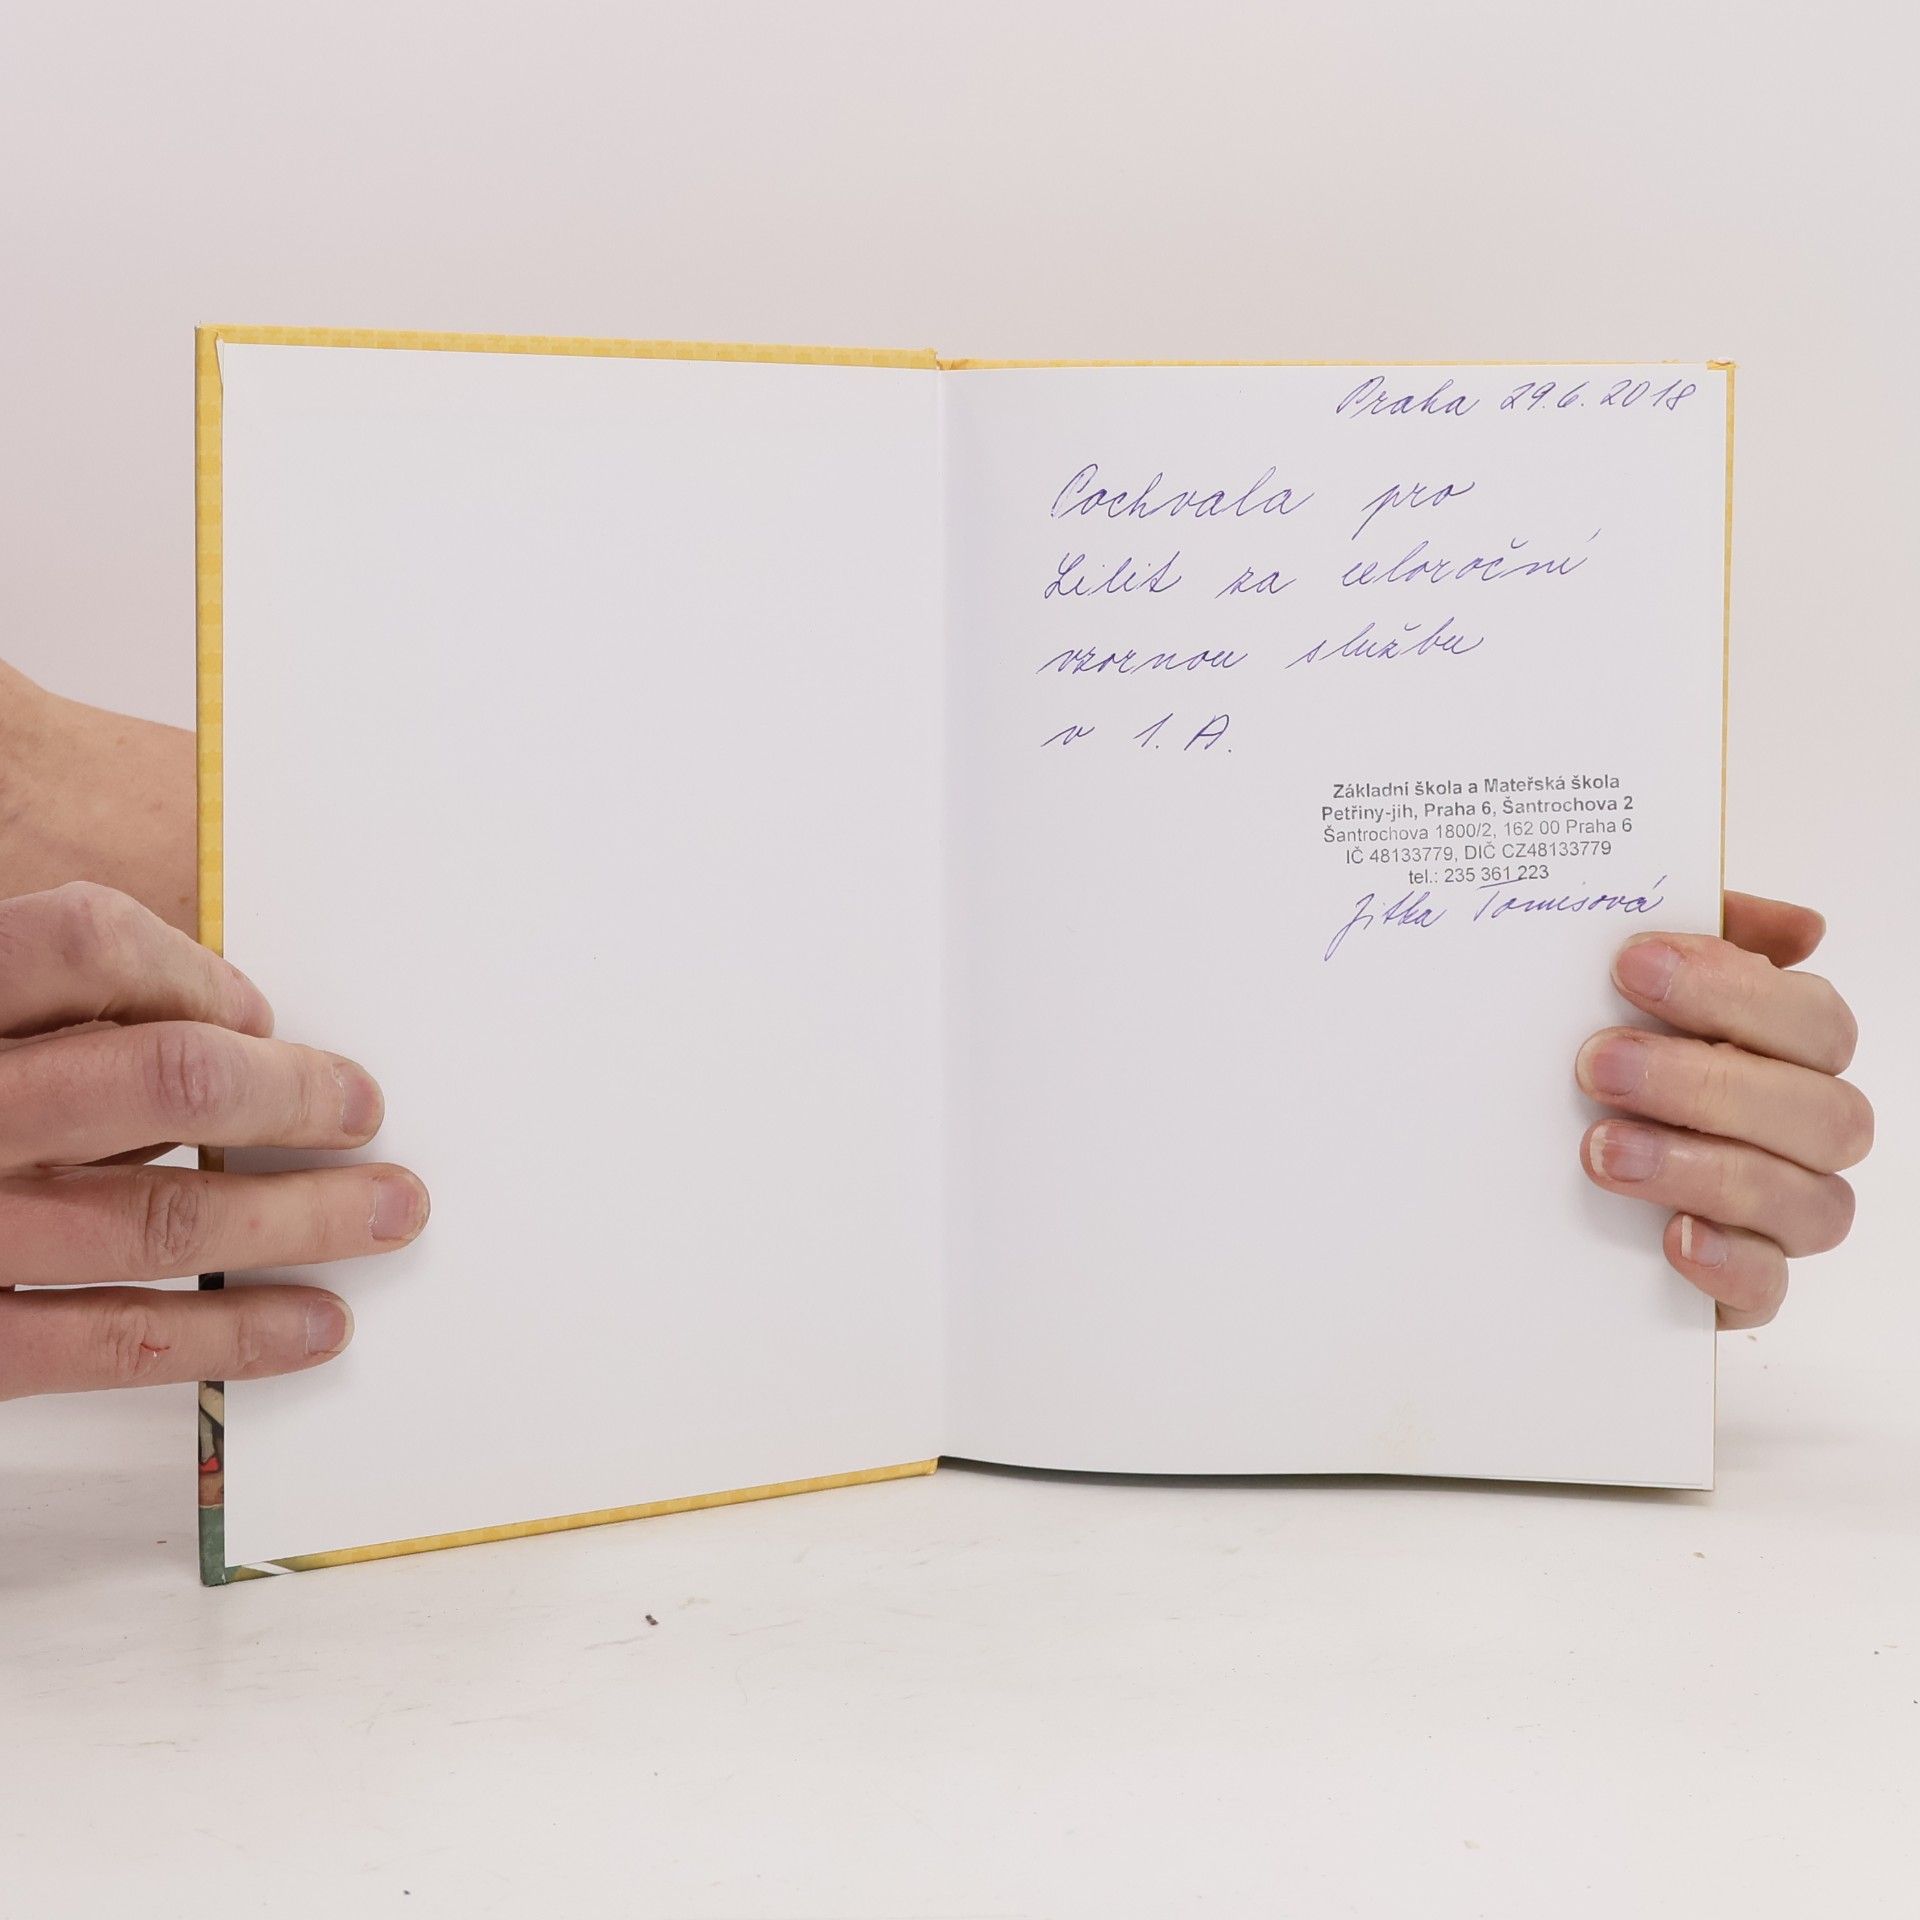 Praha 29.6.2018
Pochvala pro
Lilit za celoroční
vzornou službu
v 1. A.
Základní škola a Mateřská škola
Petřiny-jih, Praha 6, Šantrochova 2
Šantrochova 1800/2, 162 00 Praha 6
IČ 48133779, DIČ CZ48133779
tel.: 235 361 223
Jitka Tomisová